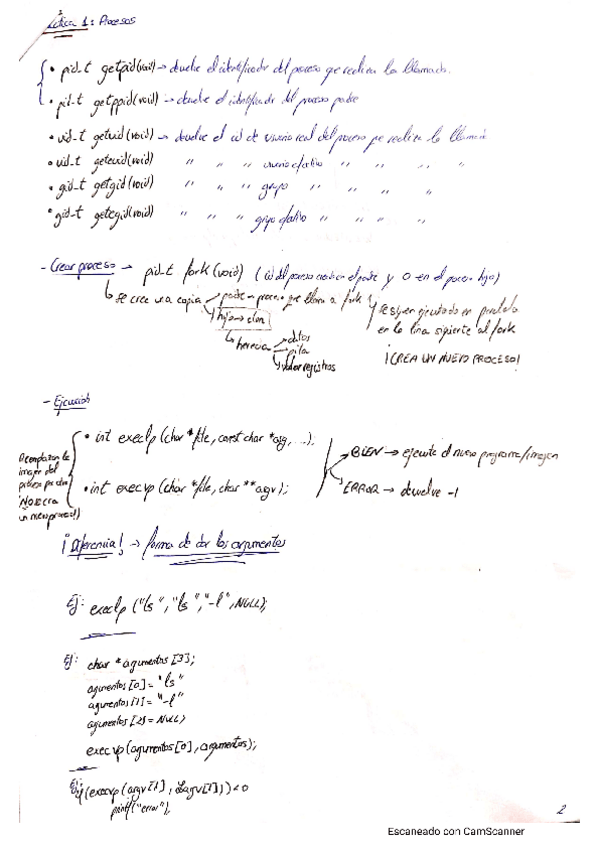 Práctica 1: Procesos
• pid_t getpid(void) → devuelve el identificador del proceso que realiza la llamada.
• pid_t getppid(void) → devuelve el identificador del proceso padre
• uid_t getuid(void) → devuelve el id de usuario real del proceso que realiza la llamada
• uid_t geteuid(void) " " " usuario efectivo " " " "
• gid_t getgid(void) " " " grupo " " "
• gid_t getegid(void) " " " grupo efectivo " " " "
- Crear proceso → pid_t fork(void) (id del proceso en el padre y 0 en el proceso hijo)
↳ se crea una copia
padre → proceso que llama a fork
hijo → clon
↳ herencia
datos
pila
valor registros
se siguen ejecutando en paralelo
en la línea siguiente al fork
¡CREA UN NUEVO PROCESO!
- Ejecución
Reemplazan la
imagen del
proceso
¡NO CREA
un nuevo proceso!)
• int execlp (char *file, const char *arg, ...);
• int execvp (char *file, char **argv);
BIEN → ejecuta el nuevo programa/imagen
ERROR → devuelve -1
¡Diferencia! → forma de dar los argumentos
Ej: execlp ("ls", "ls", "-l", NULL);
Ej: char * argumentos [3];
argumentos [0] = "ls"
argumentos [1] = "-l"
argumentos [2] = NULL
execvp (argumentos[0], argumentos);
Ej:
if (execvp (argv[1], &argv[1])) < 0
printf ("error");
2
Escaneado con CamScanner